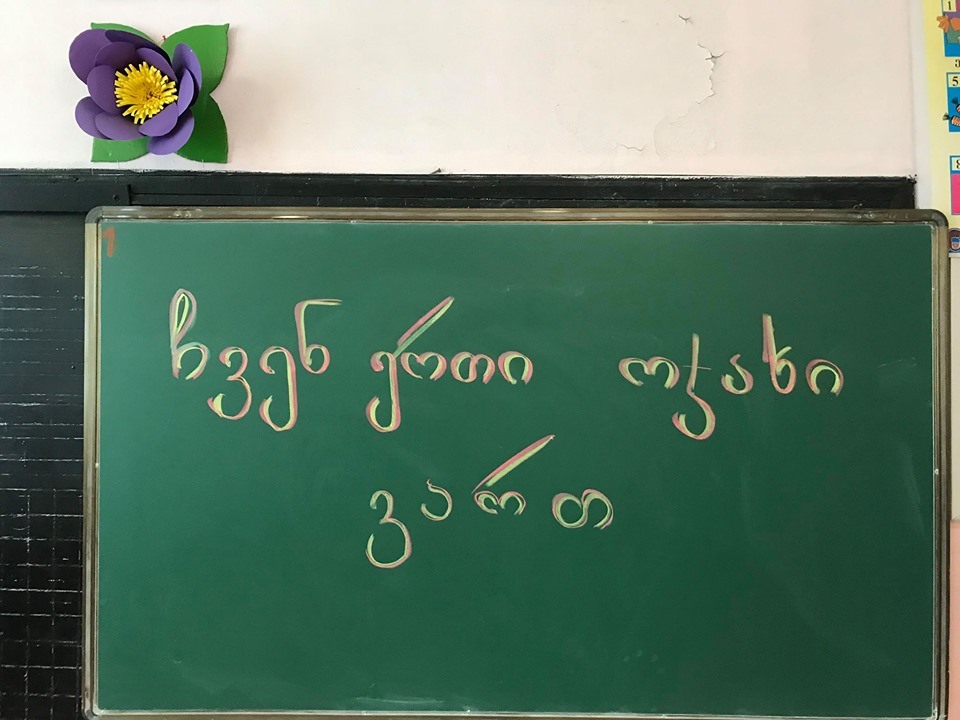 ჩვენ ერთი ოჯახი
ვართ